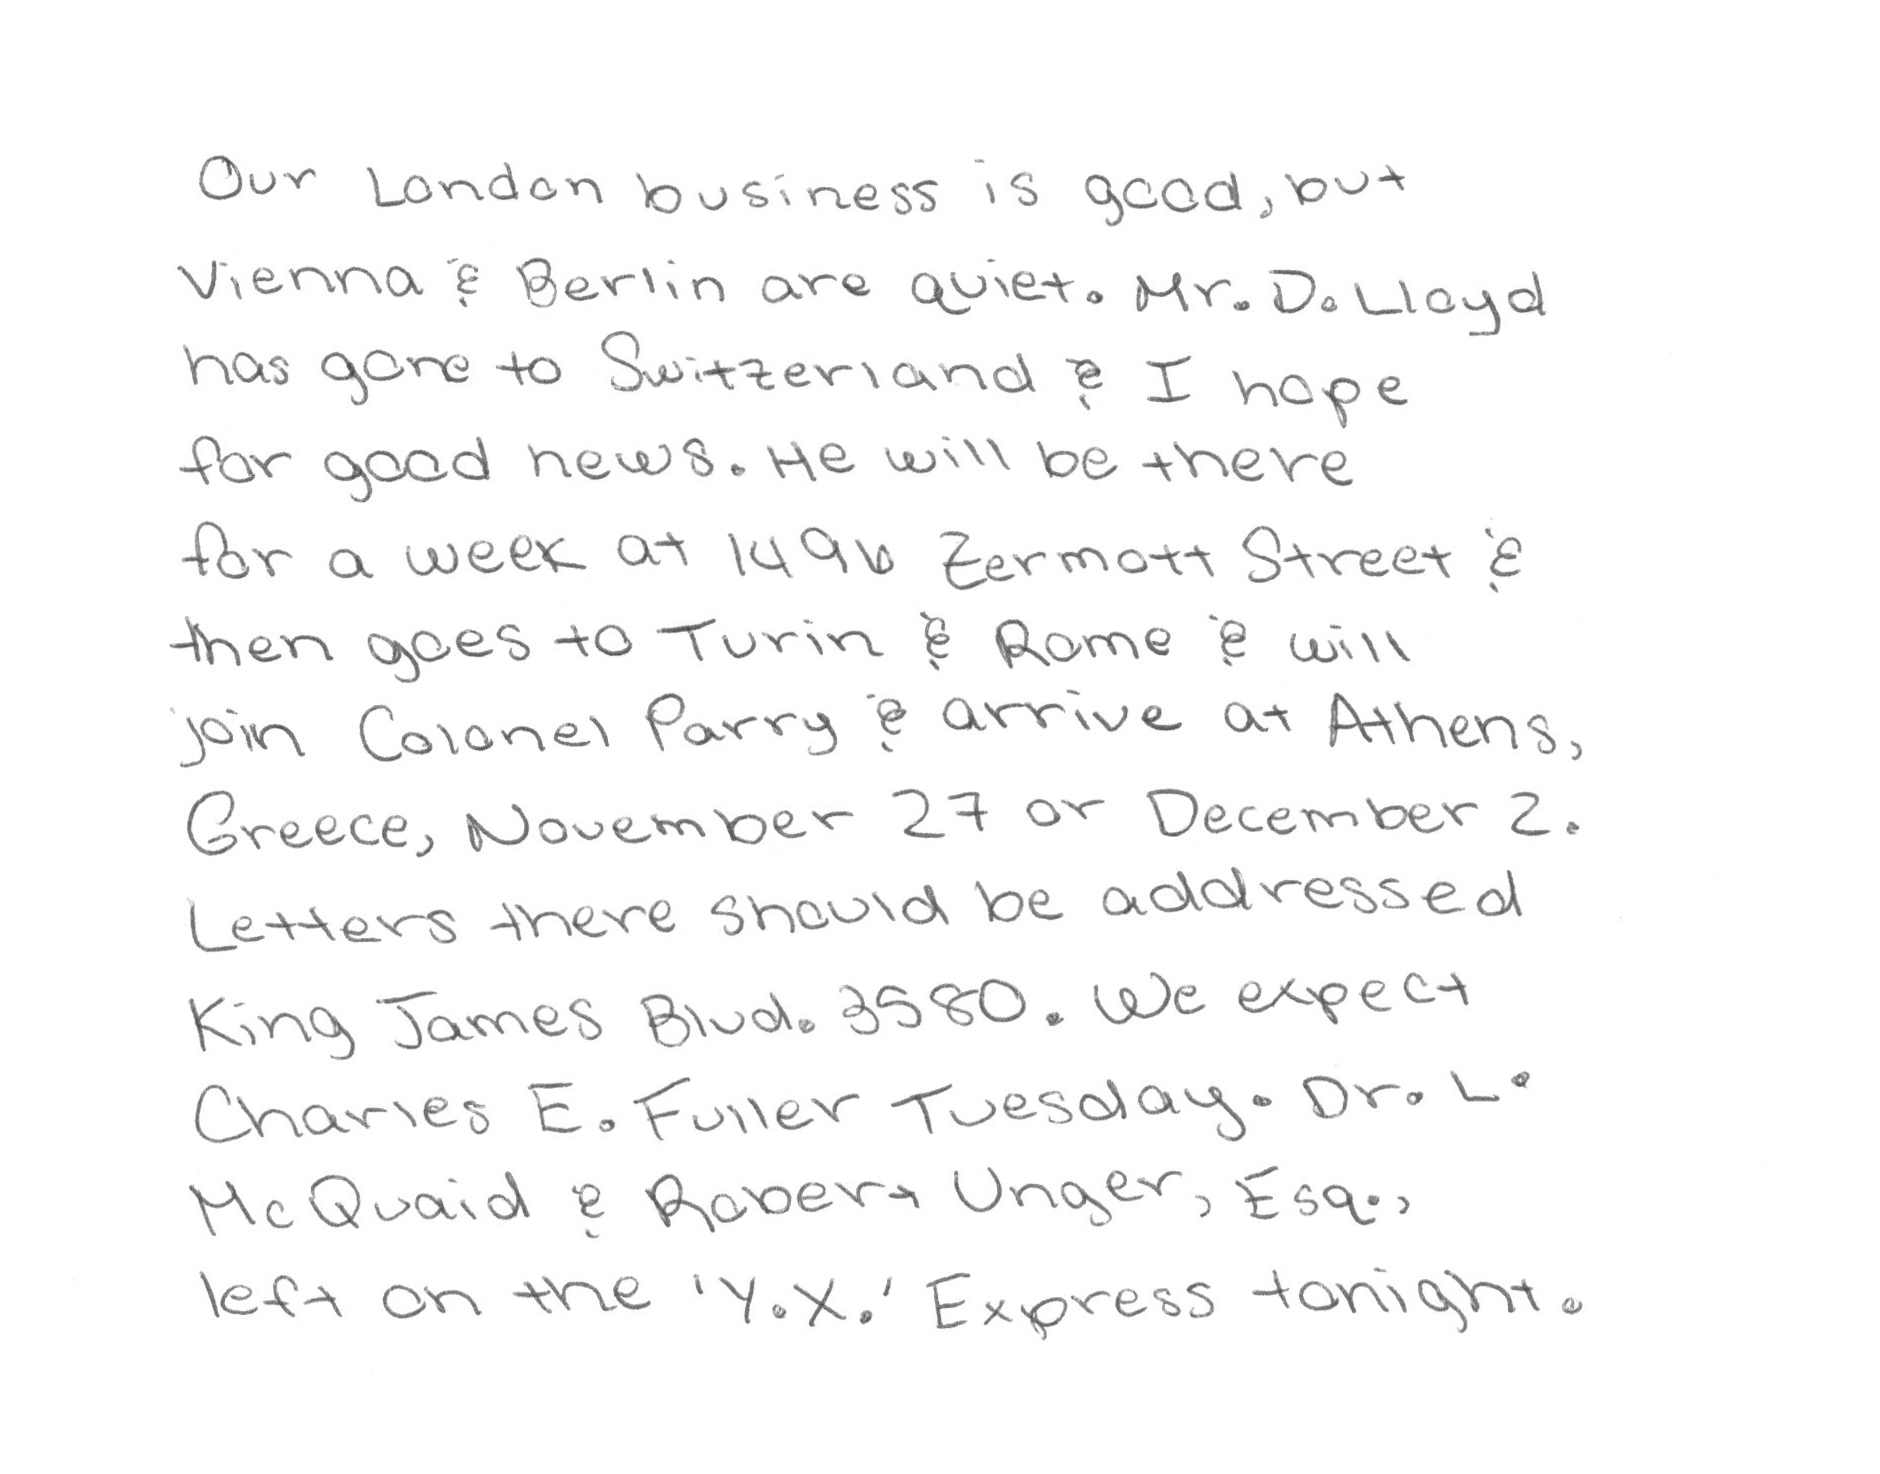 Our London business is good, but
Vienna & Berlin are quiet. Mr. D. Lloyd
has gone to Switzerland & I hope
for good news. He will be there
for a week at 1496 Zermott Street &
then goes to Turin & Rome & will
join Colonel Parry & arrive at Athens,
Greece, November 27 or December 2.
Letters there should be addressed
King James Blvd. 3580. We expect
Charles E. Fuller Tuesday. Dr. L.
McQuaid & Robert Unger, Esq.,
left on the 'Y.X.' Express tonight.